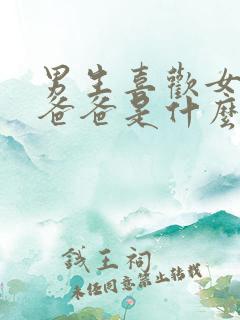 男生喜歡女
爸爸是什麼
錢王祠
未經同意禁止轉載